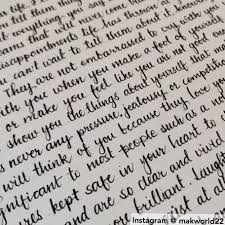 in life. I
to tell them thing
st everything you say
eams that will never come
disappointments life has thrown at
can't wait to tell them about it knowi
They are not embarrassed to cry with you
ith you when you make a fool of yourself
or make you feel like you are not good enou
show you the things about yourself that ma
never any pressure, jealousy or competitio
will think of you because they love you
ignificant to most people such as a no
res kept safe in your heart to
and are so clear and vivid
or brilliant. laugh
just at al
Instagram @ makworld22